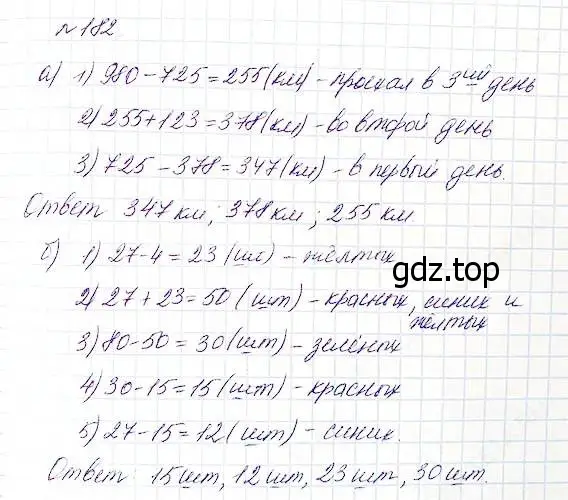 № 182
а) 1) 980 - 725 = 255 (км) - проехал в 3ий день
2) 255 + 123 = 378 (км) - во второй день
3) 725 - 378 = 347 (км) - в первый день.
Ответ 347 км; 378 км; 255 км
б) 1) 27 - 4 = 23 (шт) - жёлтых
gdz.top
2) 27 + 23 = 50 (шт) - красных, синих и
жёлтых
3) 80 - 50 = 30 (шт) - зелёных
4) 30 - 15 = 15 (шт) - красных
5) 27 - 15 = 12 (шт) - синих.
Ответ: 15 шт, 12 шт, 23 шт, 30 шт.